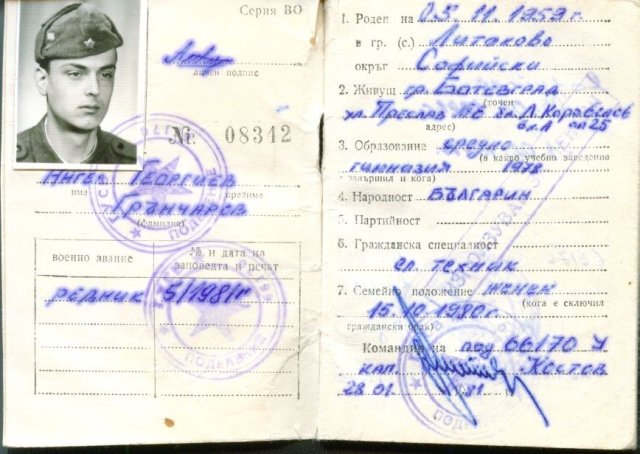 Серия ВО
личен подпис
№ 08342
Ангел Георгиев
име презиме
Грънчаров
(фамилия)
военно звание
№ и дата на
заповедта и печат
редник 5/1981г
1. Роден на 05.11.1959г.
в гр. (с.) Литаково
окръг Софийски
2. Живущ гр. Ботевград
(точен
ул. Преслав
адрес) вх. А ап 25
3. Образование средно
(в какво учебно заведение
гимназия 1978
завършил и кога)
4. Народност БЪЛГАРИН
5. Партийност
6. Гражданска специалност
ел. техник
7. Семейно положение женен
(кога е сключил
15.10.1980г.
граждански брак)
Командир на под 66170 У
кап. Костов
28.01. 81